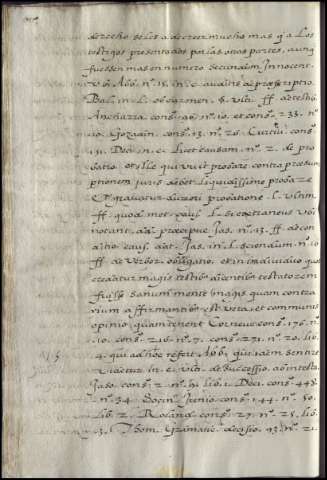 derecho se les a de creer mucho mas q̃ a Los
testigos presentados por las otras partes, aunq̃
fuessen mas en numero secundum Innocent.
Abb. nº. 15. in c. de præscriptio.
Bal. in. L. ff. de testib.
Ancharra. cons. 90. nº. 10. et cons. 233. nº.
10. Gozadin. cons. 13. nº. 26. Curtiũ. cons.
Deci. in c. Licet causam. nº. 2. de pro
batio. et ille qui vult probare contra præsum
ptionem juris debet Liquidissime probare
Et gravatur duriori probatione. L. ultim.
ff. quod met. caus. L. si extraneus ubi
notant. præcipue Jas. nº. 13. ff. de con
ditio. caus. dat. Jas. in. L. sciendum. nº. 10
ff. de Verbor. obligatio. et in individuo quod
creditur magis testibus dicentibus testatorem
fuisse sanum mente quam contra
rium affirmantibus est vera, et communis
opinio, quam tenent Corneus cons. 176. nº.
10. cons. 216. nº. 7. cons. 271. nº. 20. lib.
4. qui ad hoc refert Abb. qui idem sentire
videtur in. c. de successio. ab intesta.
Jaso. cons. 2. nº. lib. 1. Deci. cons. 448.
nº. 34. Socin. Senio. cons. 144. nº. 50.
lib. 2. Roland. cons. 27. nº. 25. lib.
3. Thom. Gramatic. decisio. 93. nº. 21.